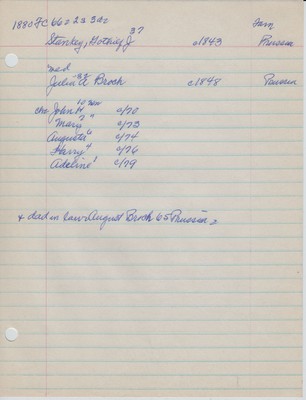 1880 FC 66 22 33 40 Fam
Stankey, Gothrey J 37 c1843 Prussia
md
Julia A 32 Brock c1848 Prussia
ch: John H 10 c/70
Mary 7 " c/73
Augusta 6 c/74
Harry 4 c/76
Adeline 1 c/79
+ dad in law August Brock 65 Prussia